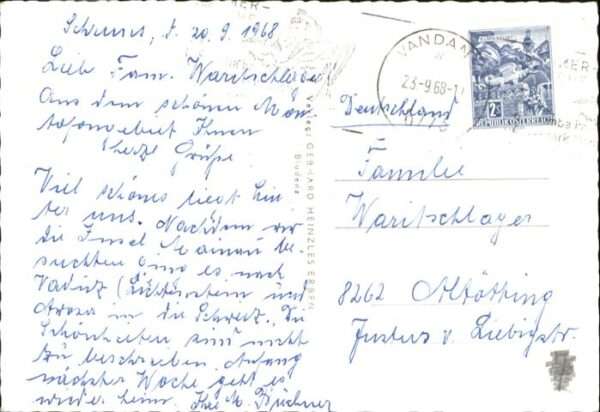 Schruns, d. 20.9.1968
Liebe Fam. Waritschlager!
Aus dem schönen Mon
tafongebiet Ihnen
herzl. Grüße
Viel schönes liegt hin
ter uns. Nachdem wir
die Insel Mainau be-
suchten ging es nach
Vaduz (Lichtenstein und
Arosa in die Schweiz. Die
Schönheiten sind nicht
zu beschreiben. Anfang
nächster Woche geht es
wieder heim. Ihre Büchner
Verlag: GERHARD HEINZLE'S ERBEN
Bludenz
VANDAN
23.-9.68-1
2S
REPUBLIK ÖSTERREICH
Deutschland
Familie
Waritschlager
8262 Altötting
Justus v. Liebigstr.